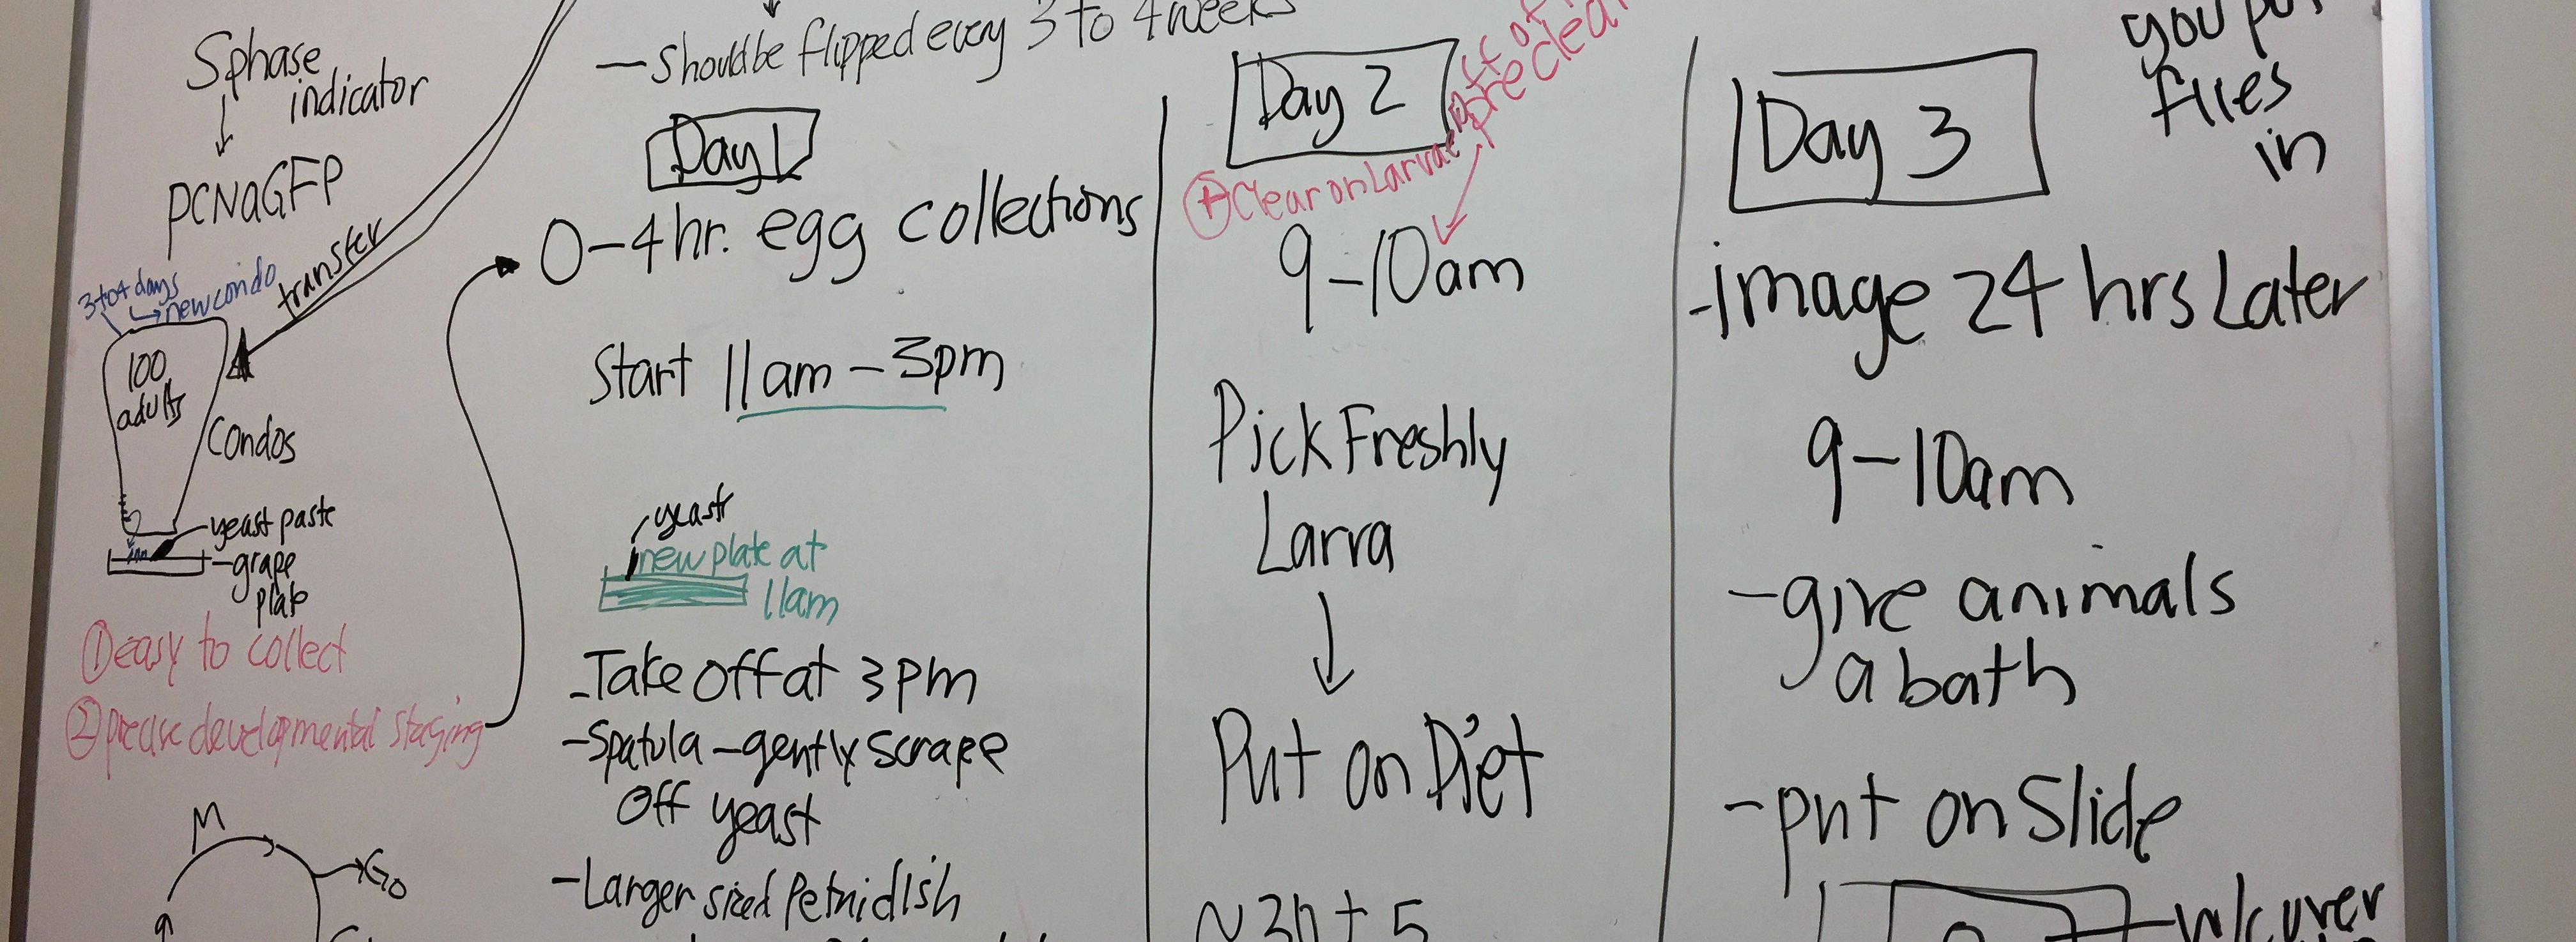 Sphase
indicator
PCNaGFP
3to4 days
newcondo
transfer
100
adults
Condos
yeast paste
grape
plate
① easy to collect
② precise developmental staging
M
Go
- Should be flipped every 3 to 4 weeks
Day 1
0-4 hr. egg collections
Start 11am - 3pm
yeast
new plate at
11am
- Take off at 3pm
- Spatula - gently scrape
Off yeast
- Larger sized Petri dish
Day 2
preclear
Clear on Larvae
9-10am
Pick Freshly
Larva
Put on Diet
you put
flies
in
Day 3
- image 24 hrs Later
9-10am
- give animals
a bath
- put on Slide
w/cover